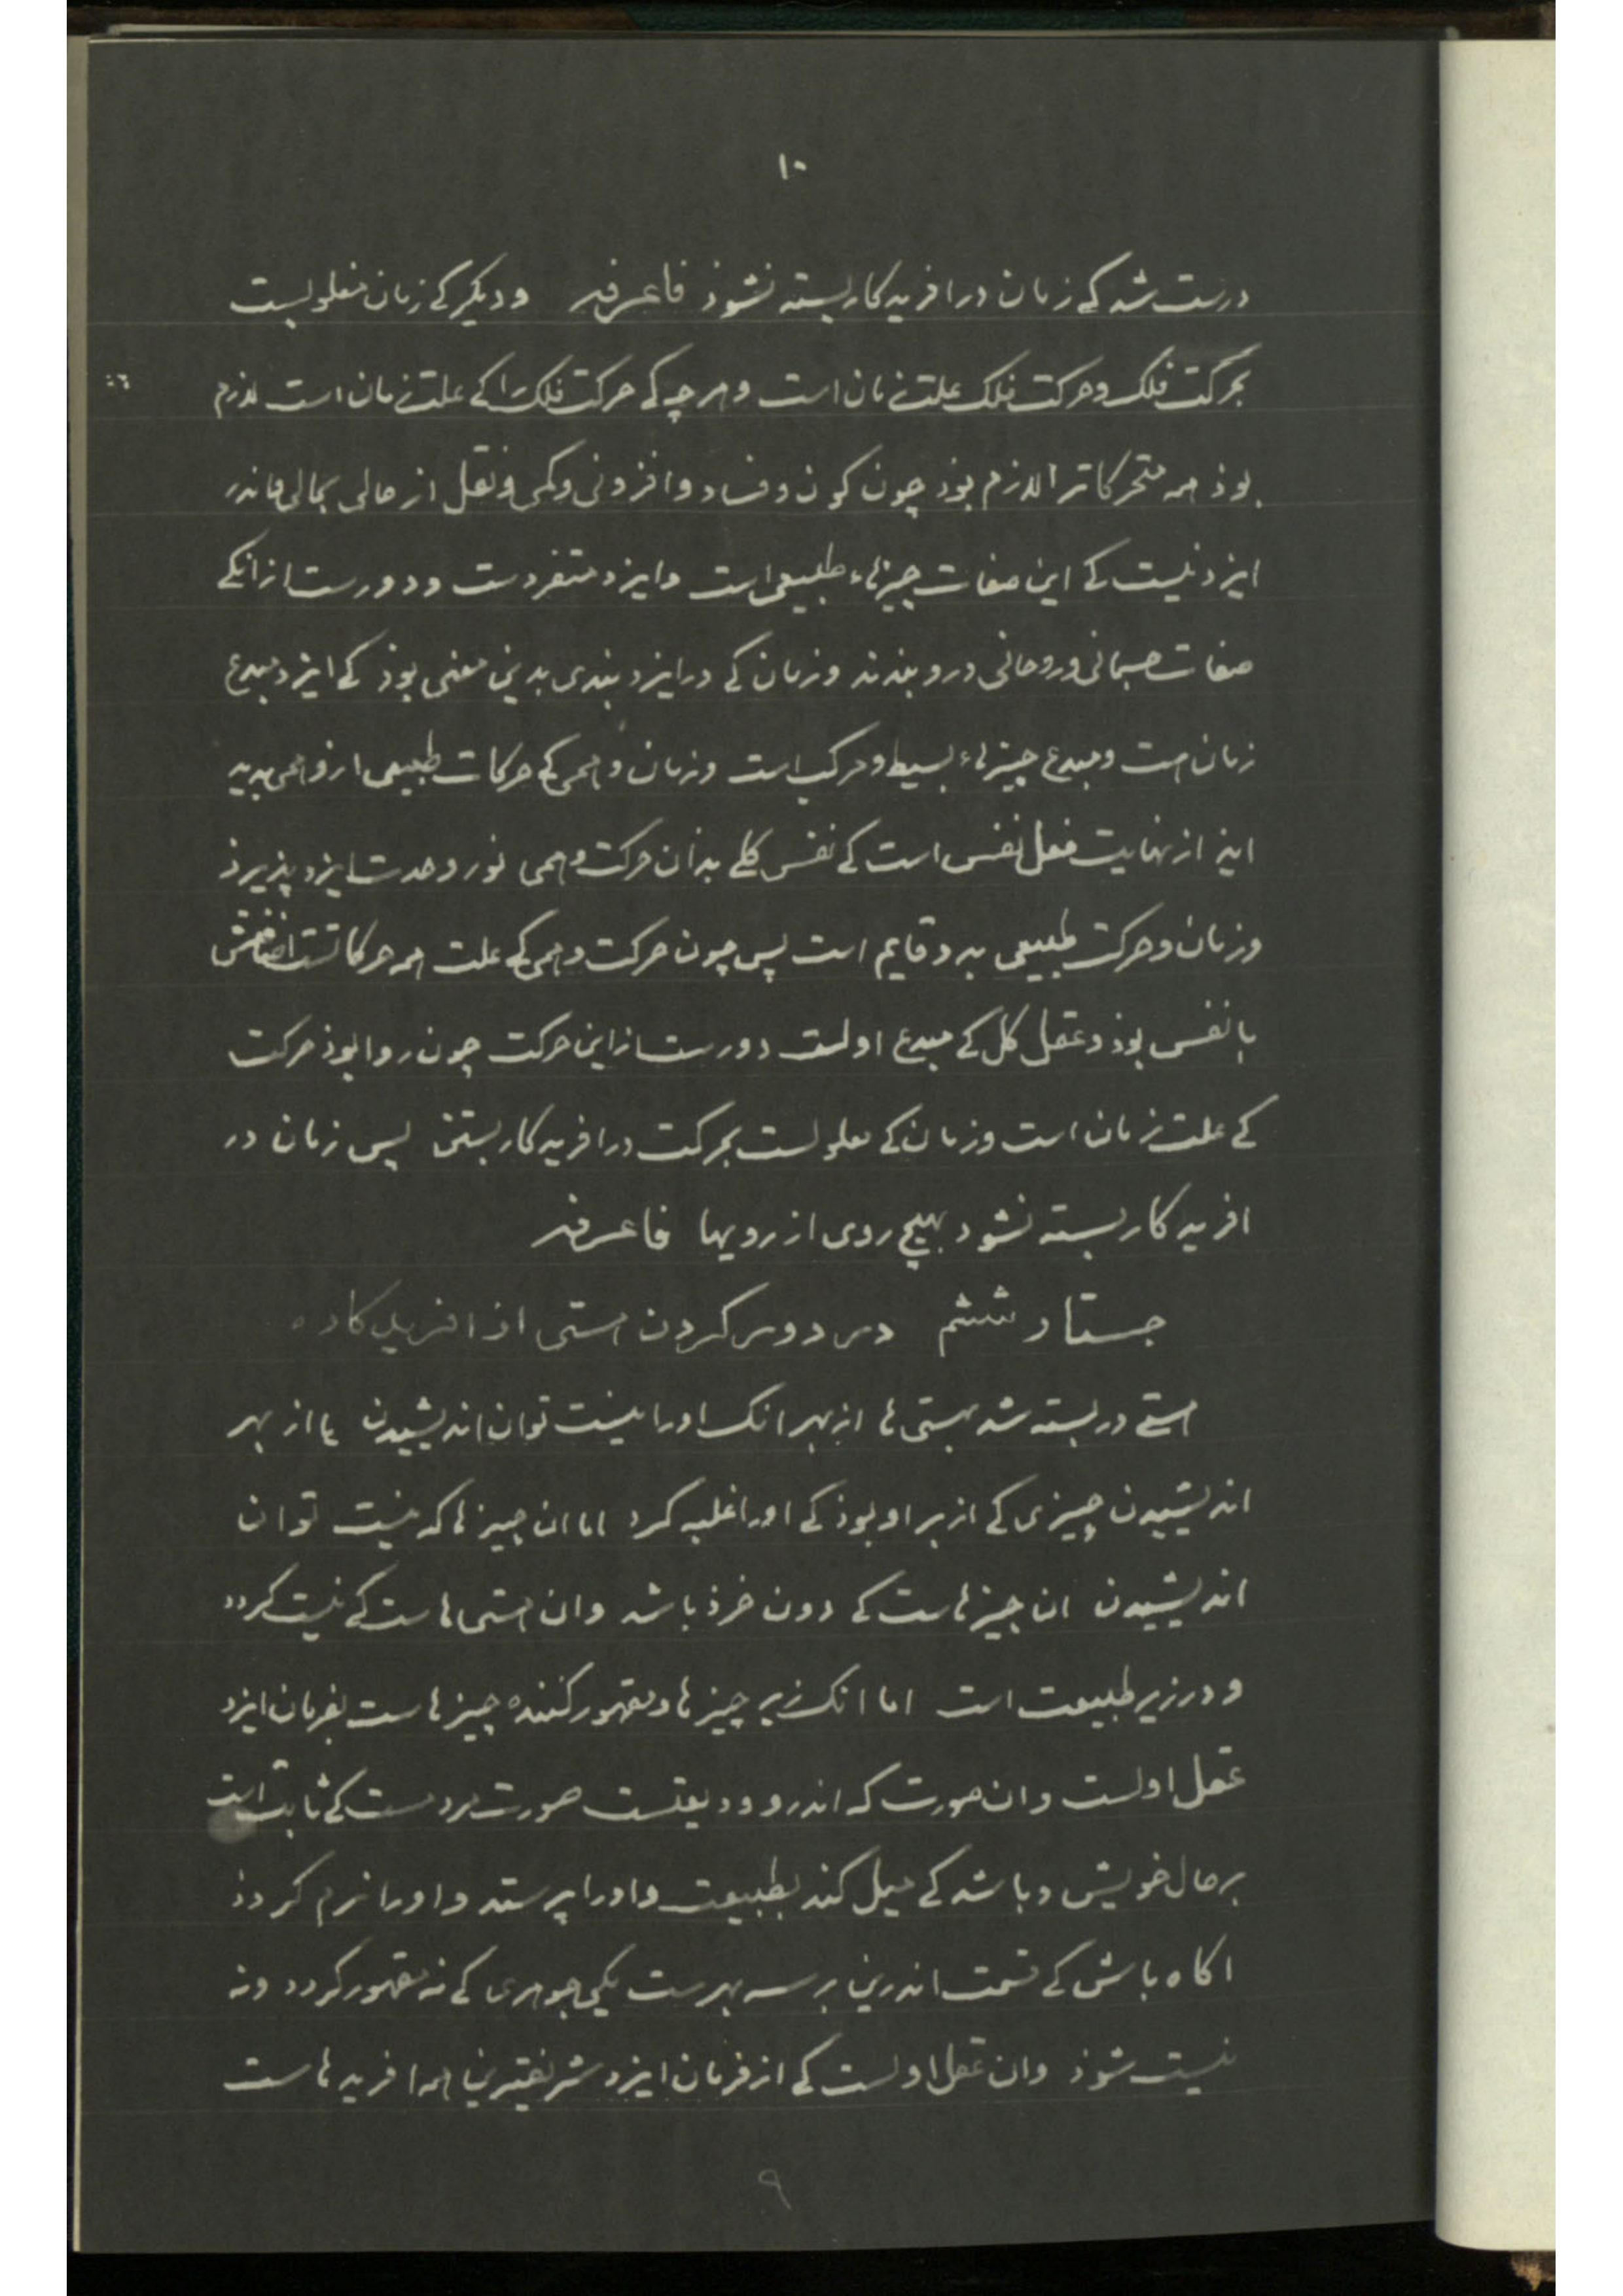 ۱۰
درست شد کے زمان در افریدکار بسته نشوذ فاعرفه ودیکر کے زمان معلولست
بحرکت فلک وحرکت فلک علت زمان است وهرچه کے حرکت فلک را کے علت زمان است لازم
بوذ همه متحرکاترا لازم بوذ چون کون وفساد وافزونی وکمی ونقل از حالی بحالی واندر
ایزد نیست کے این صفات چیزهاء طبیعی است وایزد متفردست ودورست از انکے
صفات جسمانی وروحانی درو بندند وزمان کے در ایزد بندی بدین معنی بوذ کے ایزد مبدع
زمان است ومبدع چیزهاء بسیط ومرکب است وزمان وهمی کے حرکات طبیعی ازو همی پدید
اید از نهایت فعل نفس است کے نفس کلے بدان حرکت وهمی نور وحدت ایزد پذیرذ
وزمان وحرکت طبیعی بدو قایم است پس چون حرکت وهمی کے علت همه حرکاتست اضافتش
با نفس بوذ وعقل کل کے مبدع اولست دورست از این حرکت چون روا بوذ حرکت
کے علت زمان است وزمان کے معلولست بحرکت در افریدکار بستن پس زمان در
افریدکار بسته نشود بهیچ روی از رویها فاعرفه
جستار ششم در دور کردن هستی از افریدکار ه
هستے در بسته شد بهستی ها از بهر انک اورا نیست توان اندیشیدن یا از بهر
اندیشیدن چیزی کے از بر او بوذ کے اورا غلبه کرد اما ان چیزها که نیست توان
اندیشیدن ان چیزهاست کے دون خرذ باشد وان هستی هاست کے نیست کردد
ودر زیر طبیعت است اما انک زبر چیزها ومقهور کننده چیزهاست بفرمان ایزد
عقل اولست وان صورت که اندرو ودیعتست صورت مردمست کے ثابت است
بر حال خویش وباشد کے میل کند بطبیعت واورا پرستد واورا نرم کردذ
اکاه باش کے قسمت اندرین بر سه بهرست یکی جوهری کے نه مقهور کردد ونه
نیست شوذ وان عقل اولست کے از فرمان ایزد شریفترین همه افریدهاست
۹